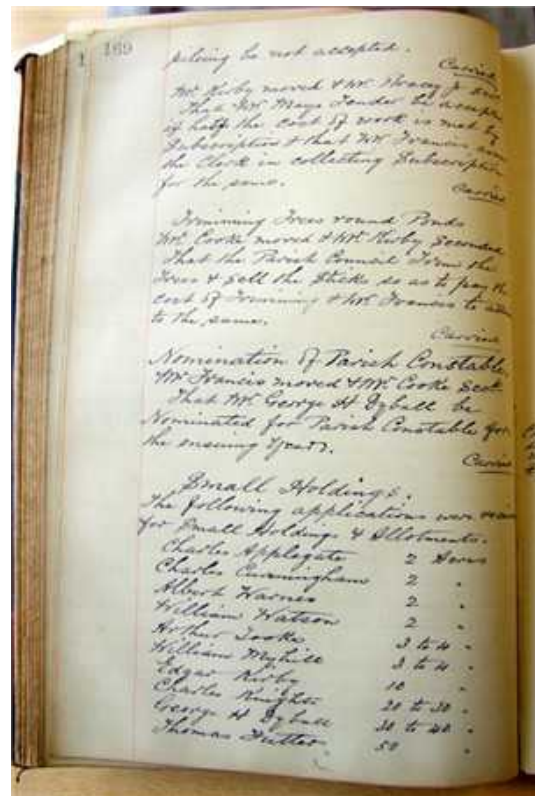 169
be not accepted.
Carried
Mr. Kirby moved & Mr.
That Mr. Mays Tender be
if half the cost of work is met by
Subscription & that Mr Francis
the Clerk in collecting Subscription
for the same.
Carried
Trimming Trees round Ponds
Mr. Cooke moved & Mr. Kirby Seconded
That the Parish Council Trim the
Trees & Sell the Sticks so as to pay the
cost of Trimming & Mr Francis to
to the same.
Carried
Nomination of Parish Constable
Mr Francis moved & Mr. Cooke
That Mr. George H Dyball be
Nominated for Parish Constable for
the ensuing Years.
Carried
Small Holdings.
The following applications were
for Small Holdings & Allotments.
Charles Applegate 2 Acres
Charles Cunningham 2 "
Albert Harnes 2 "
William Watson 2 "
Arthur Tooke 3 to 4 "
William Myhill 3 to 4 "
Edgar Kirby 10 "
Charles Knights 20 to 30 "
George H Dyball 30 to 40 "
Thomas 50 "